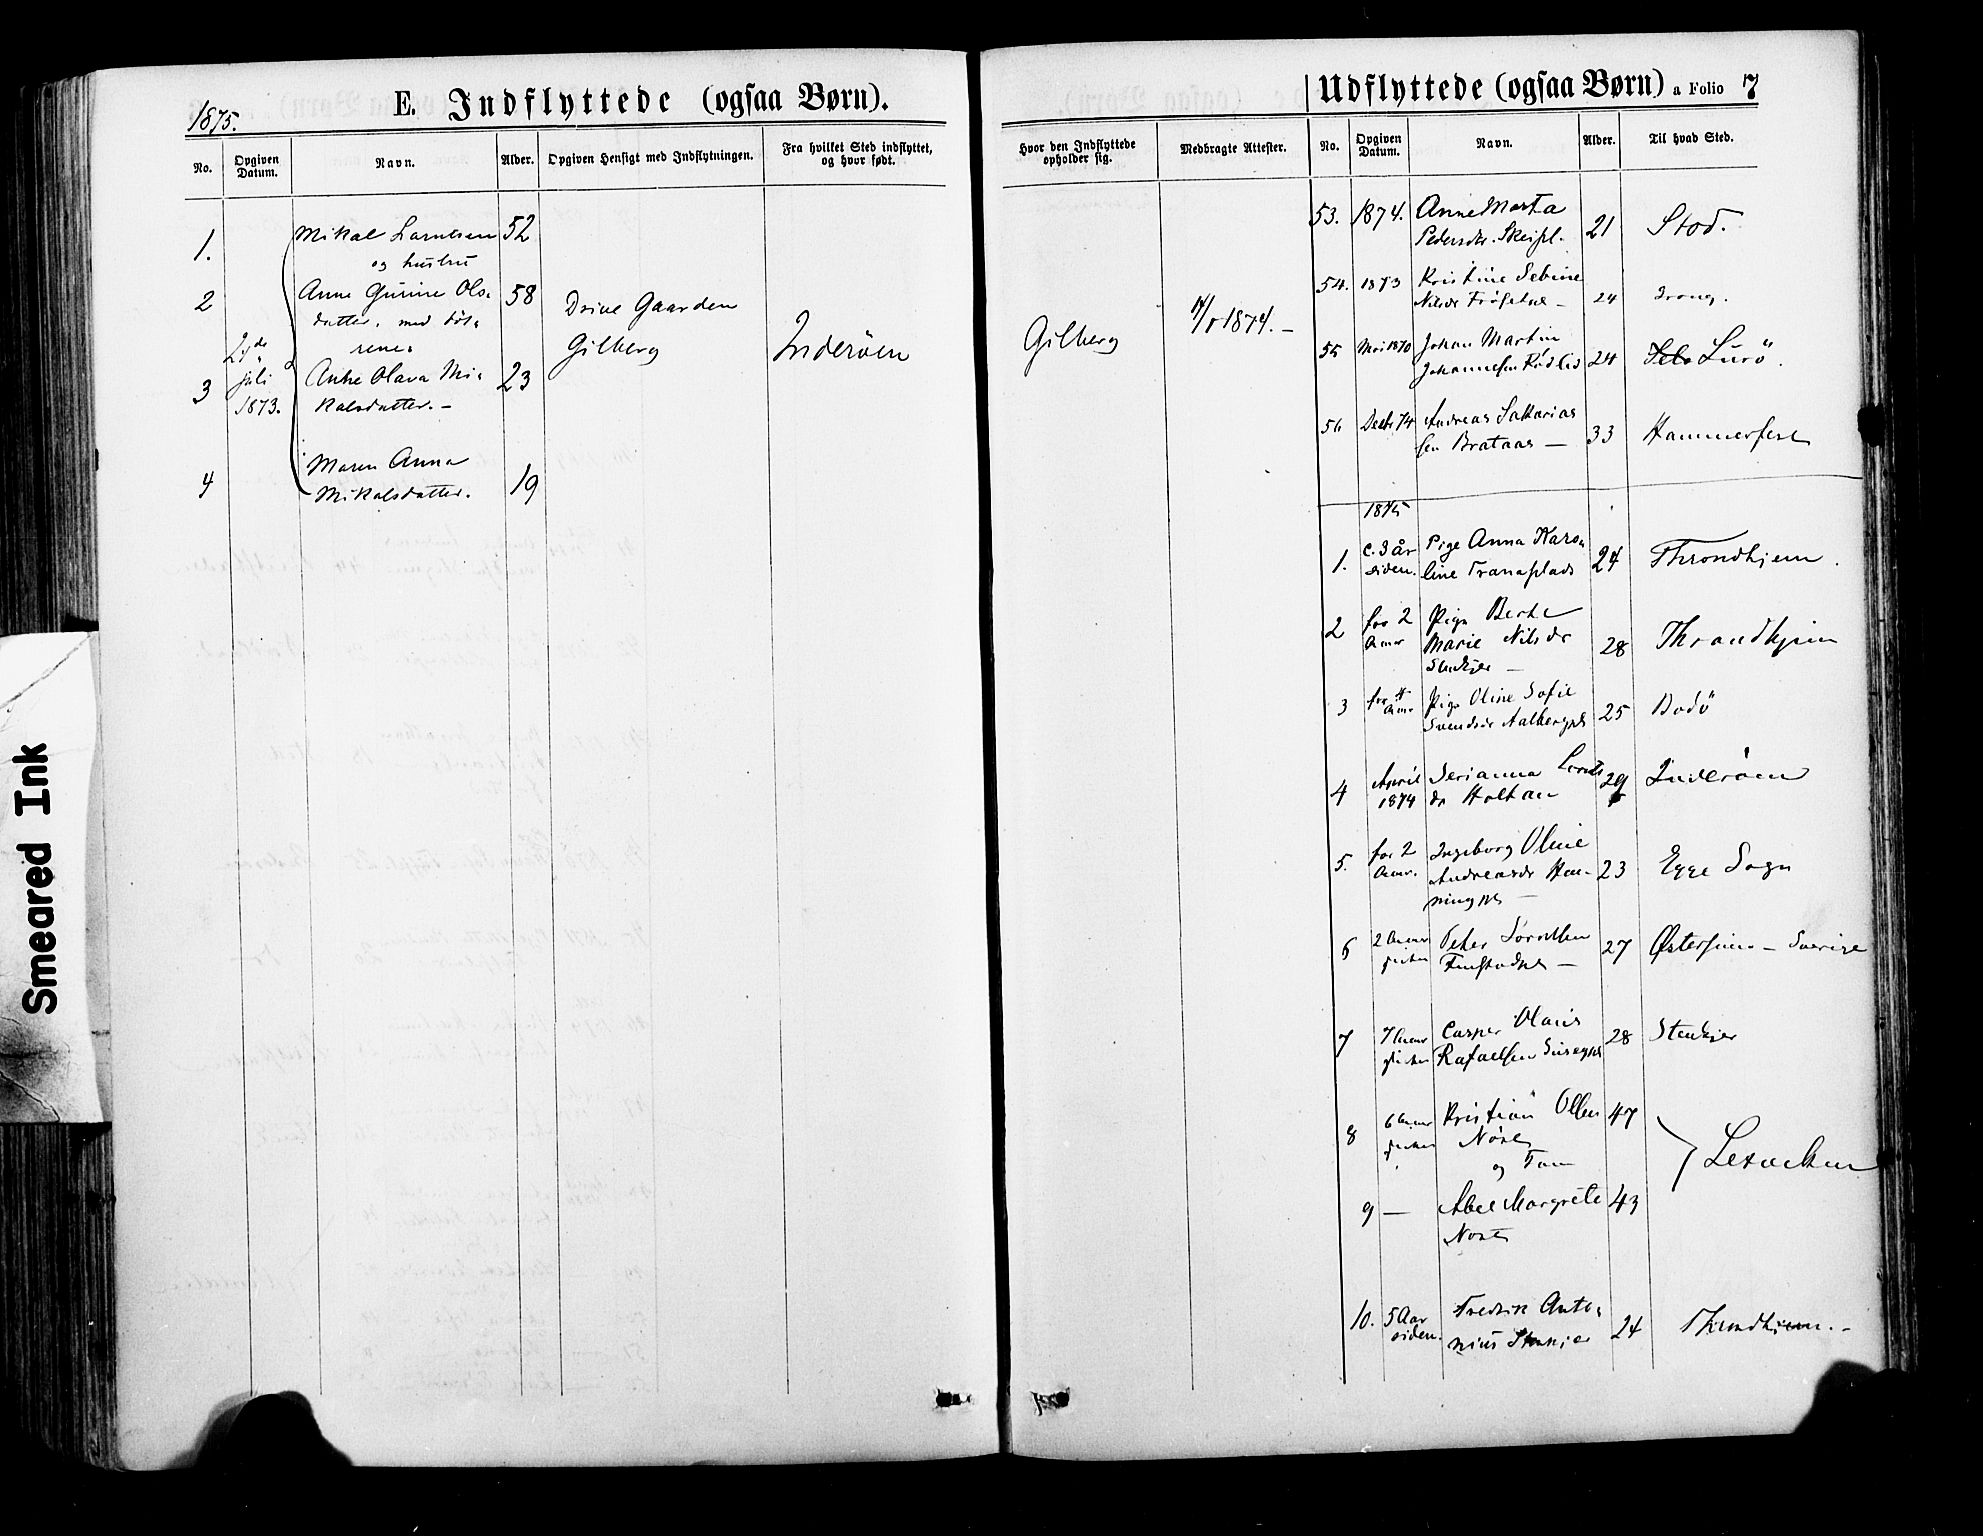 1875.
E. Indflyttede (ogsaa Børn).
No.
Opgiven Datum.
Navn.
Alder.
Opgiven Hensigt med Indflytningen.
Fra hvilket Sted indflyttet, og hvor født.
1.
Mikal Larntsen 52
og hustru
2
Anne Gurine Ols- 58
datter, med døt-
rene.
Drive Gaarden
Gilberg
Inderöen
Juli
1873.
3
Anne Olava Mi- 23
kalsdatter. —
4
Maren Anna
Mikalsdatter. 19
Udflyttede (ogsaa Børn) a Folio 7
Hvor den Indflyttede opholder sig.
Medbragte Attester.
No.
Opgiven Datum.
Navn.
Alder.
Til hvad Sted.
Gilberg
1874. —
53. 1874. Anne Marta
Pedersdtr. 21 Stod.
54. 1873 Kristine Sebine
Nilsdr 24
55 1870 Johan Martin
Johannesen 24 Lurö.
56 Decbr 74 Andreas Sakarias
sen Brataas — 33 Hammerfest
1875
1. c. 3 år Pige Anna Karo-
siden. line Tranaplads 24 Throndhjem.
2 for 2 Pige Berte
Aar Marie Nilsdr 28 Throndhjem
Stenkjer —
3 for 4 Pige Oline Sofie
Aar Svendsdr 25 Bodö
4 April Serianna
1874 dr Holtan 29 Inderöen
5. for 2 Ingeborg Oline
Aar. Andreasdr 23 Egge Sogn
6 2 Aar Peter
27 Østersund — Sverige
7 7 Casper Olaus
Rafaelsen 28 Stenkjer
8 6 Kristian Olsen 47
og Fam
9 — Abel Margrete 43
10. 5 Aar Fredrik Anto-
siden. nius Stenkjer 24 Throndhjem. —
Smeared Ink